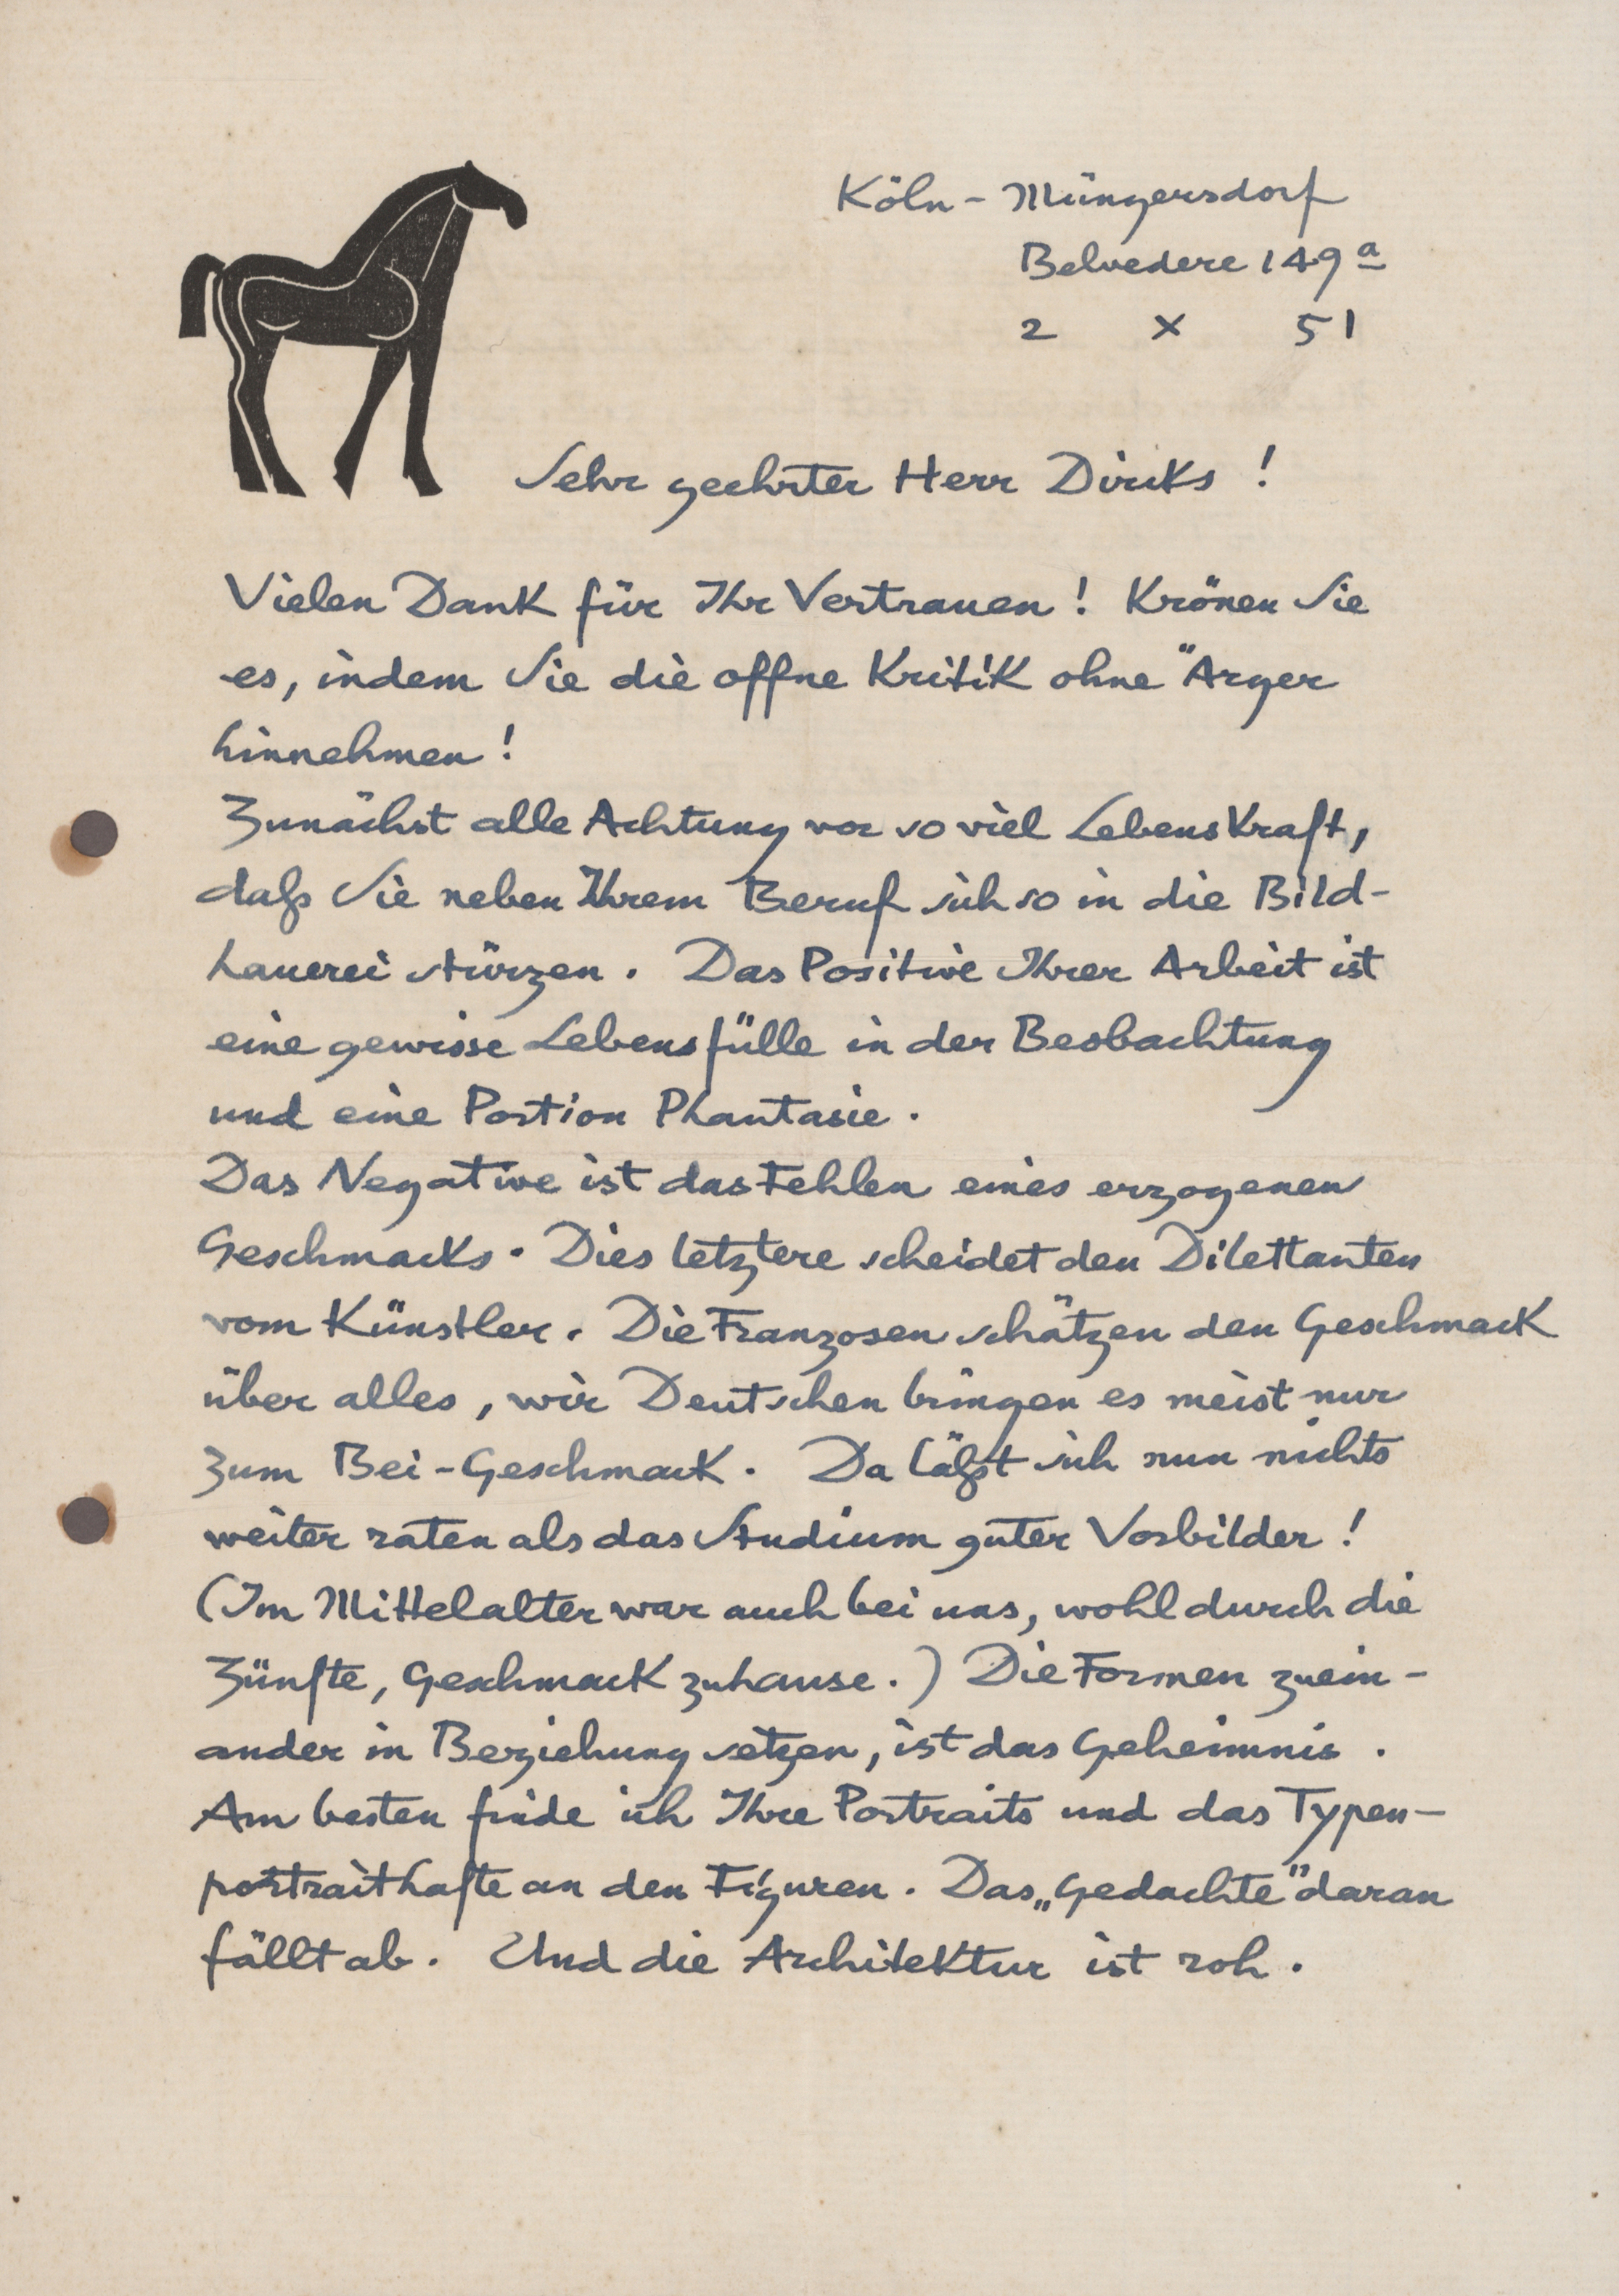 Köln - Müngersdorf
Belvedere 149a
2 X 51
Sehr geehrter Herr Dircks !
Vielen Dank für Ihr Vertrauen ! Krönen Sie
es, indem Sie die offne Kritik ohne Ärger
hinnehmen !
Zunächst alle Achtung vor so viel Lebenskraft,
daß Sie neben Ihrem Beruf sich so in die Bild-
hauerei stürzen . Das Positive Ihrer Arbeit ist
eine gewisse Lebensfülle in der Beobachtung
und eine Portion Phantasie .
Das Negative ist das Fehlen eines erzogenen
Geschmacks . Dies letztere scheidet den Dilettanten
vom Künstler . Die Franzosen schätzen den Geschmack
über alles , wir Deutschen bringen es meist nur
zum Bei-Geschmack . Da läßt sich nun nichts
weiter raten als das Studium guter Vorbilder !
(Im Mittelalter war auch bei uns, wohl durch die
Zünfte, Geschmack zuhause . ) Die Formen zuein-
ander in Beziehung setzen, ist das Geheimnis .
Am besten finde ich Ihre Portraits und das Typen-
portraithafte an den Figuren . Das „Gedachte" daran
fällt ab . Und die Architektur ist roh .